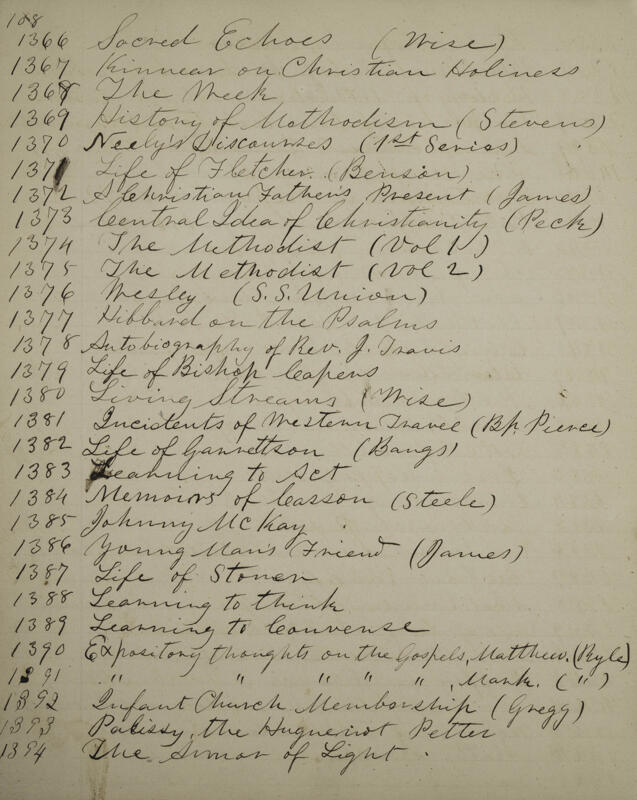 108
1366 Sacred Echoes (Wise)
1367 Kinnear on Christian Holiness
1368 The Week
1369 History of Methodism (Stevens)
1370 Neely's Discourses (1st Series)
1371 Life of Fletcher. (Benson)
1372 A Christian Father's Present (James)
1373 Central Idea of Christianity (Peck)
1374 The Methodist (Vol 1)
1375 The Methodist (Vol 2)
1376 Wesley (S.S. Union)
1377 Hibbard on the Psalms
1378 Autobiography of Rev. J. Travis
1379 Life of Bishop Capers
1380 Living Streams (Wise)
1381 Incidents of Western Travel (Bp. Pierce)
1382 Life of Garrettson (Bangs)
1383 Learning to Act
1384 Memoirs of Casson (Steele)
1385 Johnny McKay
1386 Young Man's Friend (James)
1387 Life of Stoner
1388 Learning to think
1389 Learning to Converse
1390 Expository thoughts on the Gospels, Matthew. (Ryle)
1391 " " " " " , Mark. (")
1392 Infant Church Membership (Gregg)
1393 Palissy, the Huguenot Potter
1394 The Armor of Light.